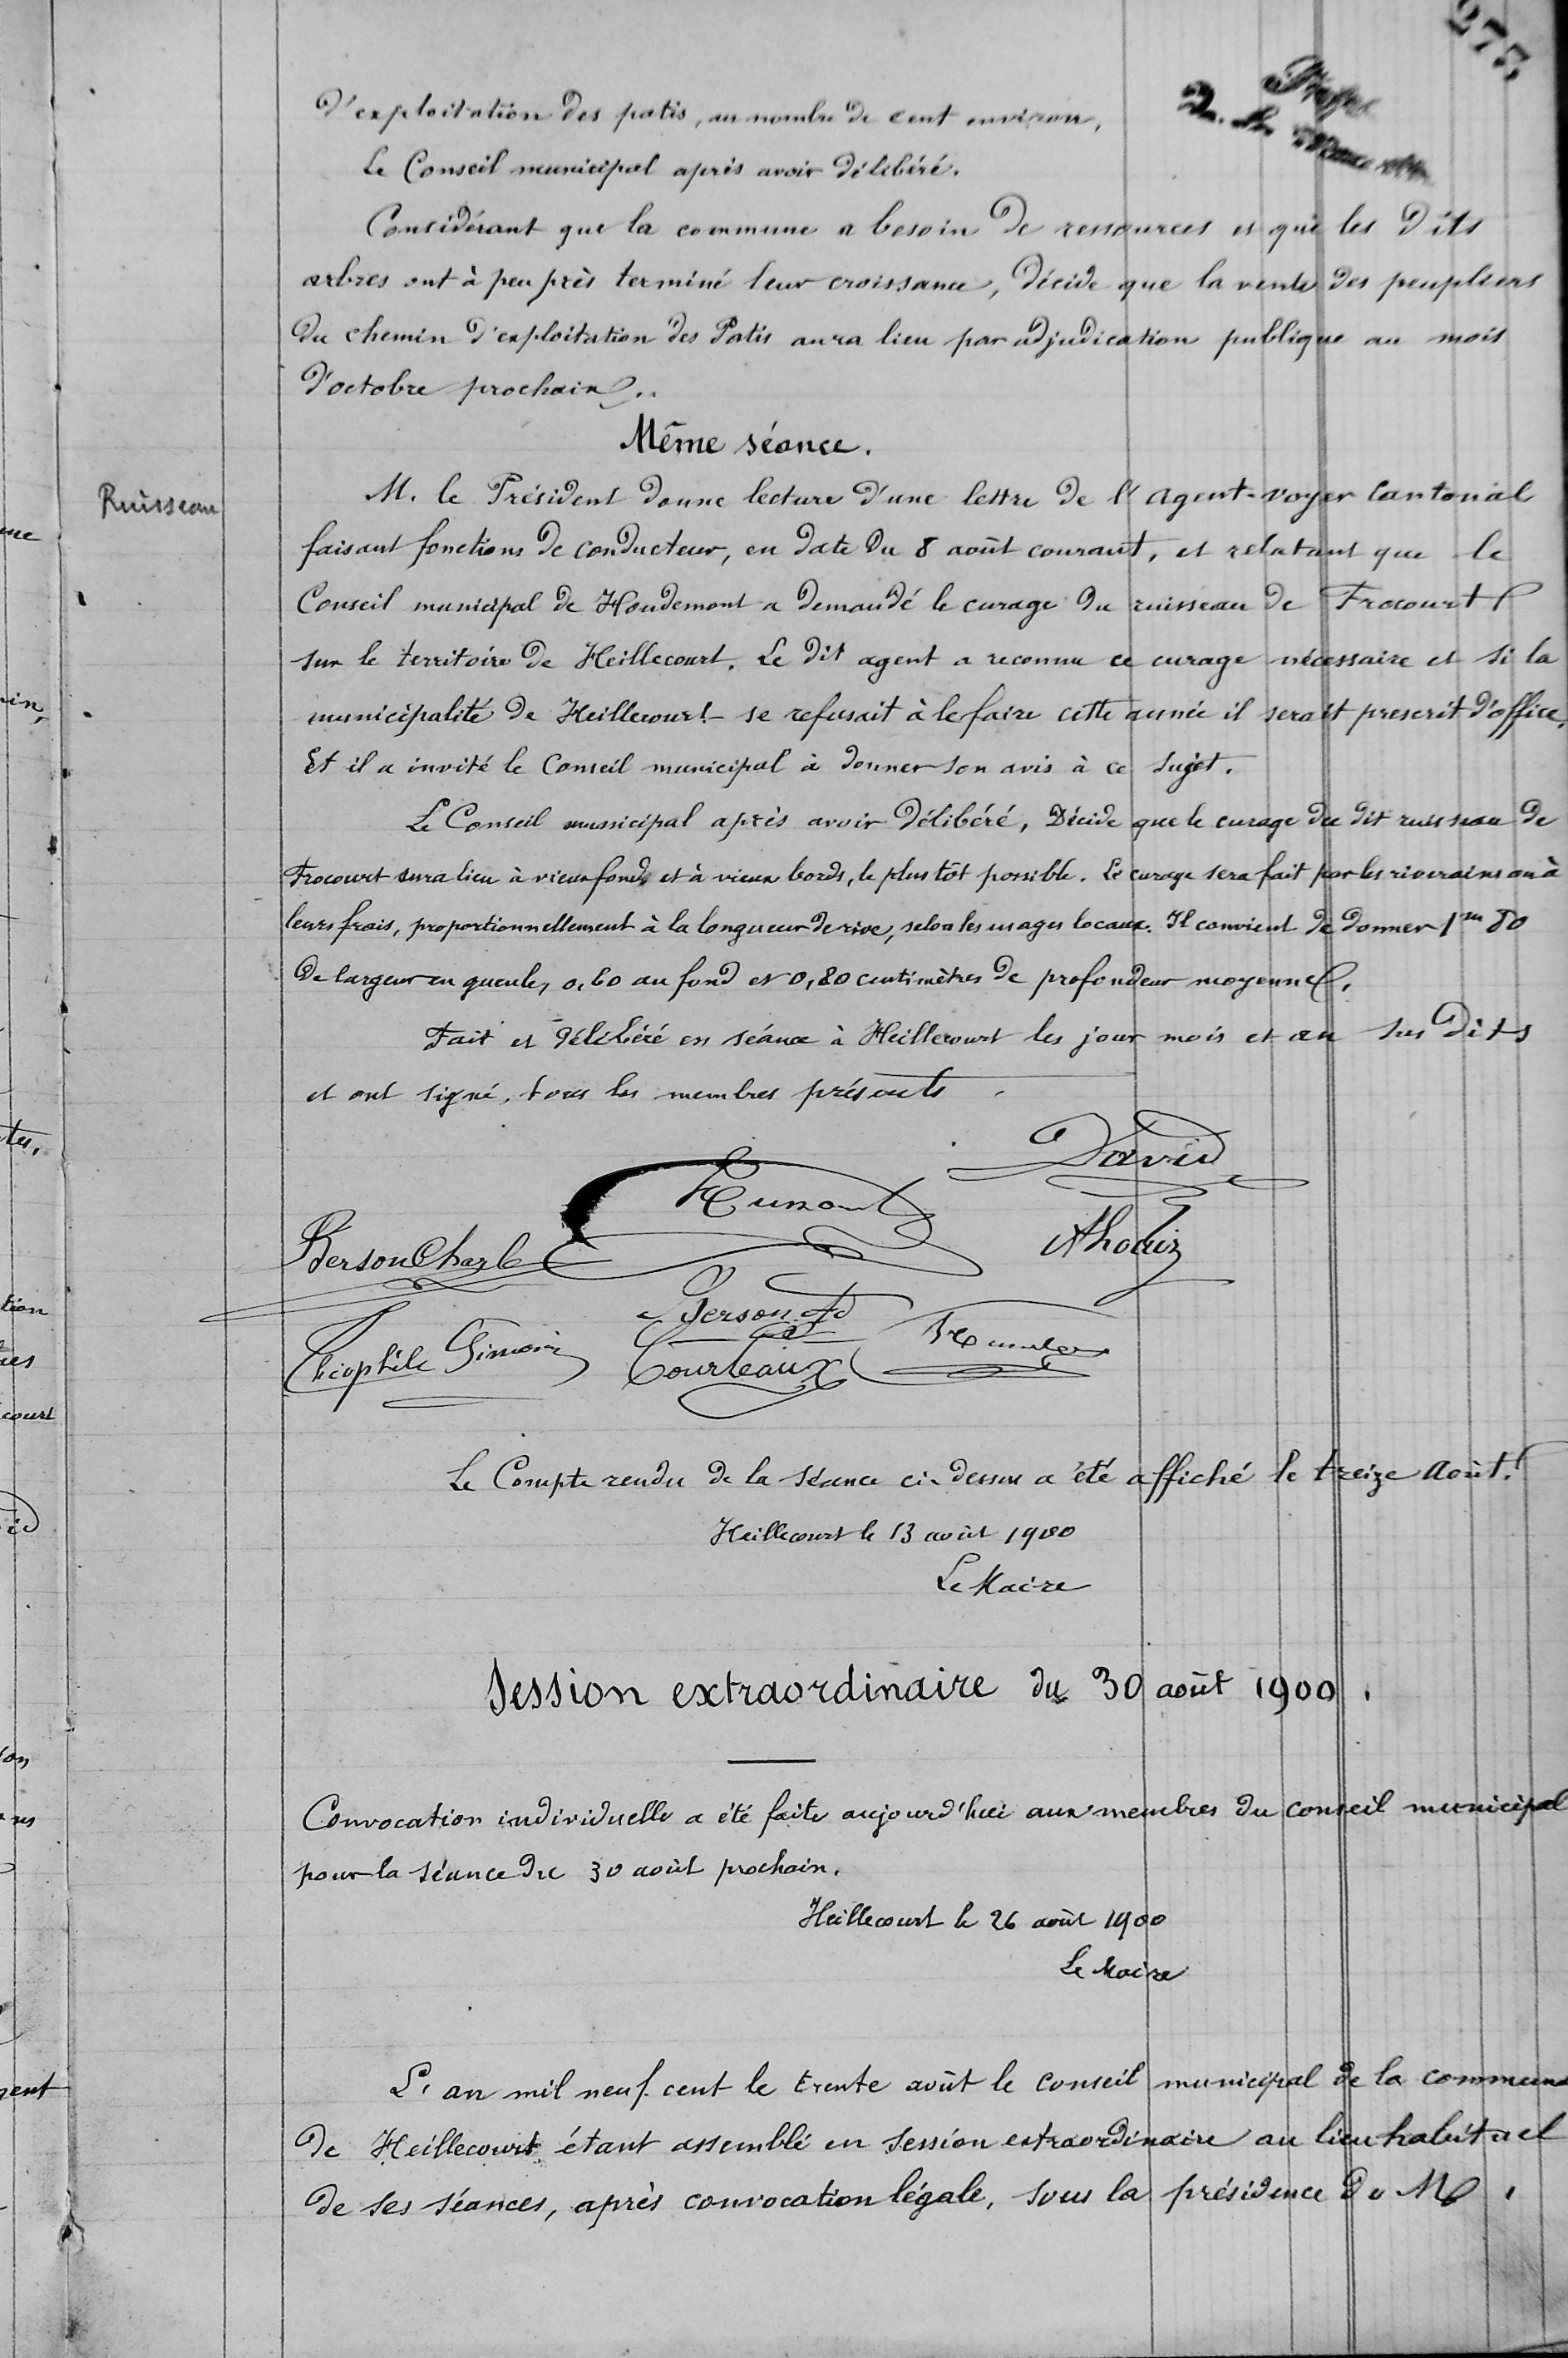 d'exploitation des patis, au nombre de cent environ,
Le Conseil municipal après avoir délibéré.
Considérant que la commune a besoin de ressources et que les dits
arbres ont à peu près terminé leur croissance, décide que la vente des peupliers
du chemin d'exploitation des Patis aura lieu par adjudication publique au mois
d'octobre prochain.
Même séance.
Ruisseau
M. le Président donne lecture d'une lettre de l'agent-voyer Cantonal
faisant fonctions de conducteur, en date du 8 août courant, et relatant que le
Conseil municipal de Houdemont a demandé le curage du ruisseau de Frocourt
sur le territoire de Heillecourt. Le dit agent a reconnu ce curage nécessaire et si la
municipalité de Heillecourt se refusait à le faire cette année il serait prescrit d'office.
Et il a invité le Conseil municipal à donner son avis à ce sujet.
Le Conseil municipal après avoir délibéré, Décide que le curage du dit ruisseau de
Frocourt aura lieu à vieux fonds et à vieux bords, le plus tôt possible. Le curage sera fait par les riverains ou à
leurs frais, proportionnellement à la longueur de rive, selon les usages locaux. Il convient de donner 1m 80
de largeur en gueule, 0,60 au fond et 0,80 centimètres de profondeur moyenne.
Fait et délibéré en séance à Heillecourt les jour mois et an sus dits
et ont signé, tous les membres présents.
David
Berson Charle
Berson Ad
Théophile Simonin
Courteaux
Le Compte rendu de la séance ci-dessus a été affiché le treize Août.
Heillecourt le 13 août 1900
Le Maire
Session extraordinaire du 30 août 1900.
Convocation individuelle a été faite aujourd'hui aux membres du conseil municipal
pour la séance du 30 août prochain.
Heillecourt le 26 août 1900
Le Maire
L'an mil neuf cent le trente août le conseil municipal de la commune
de Heillecourt étant assemblé en session extraordinaire au lieu habituel
de ses séances, après convocation légale, sous la présidence de M.